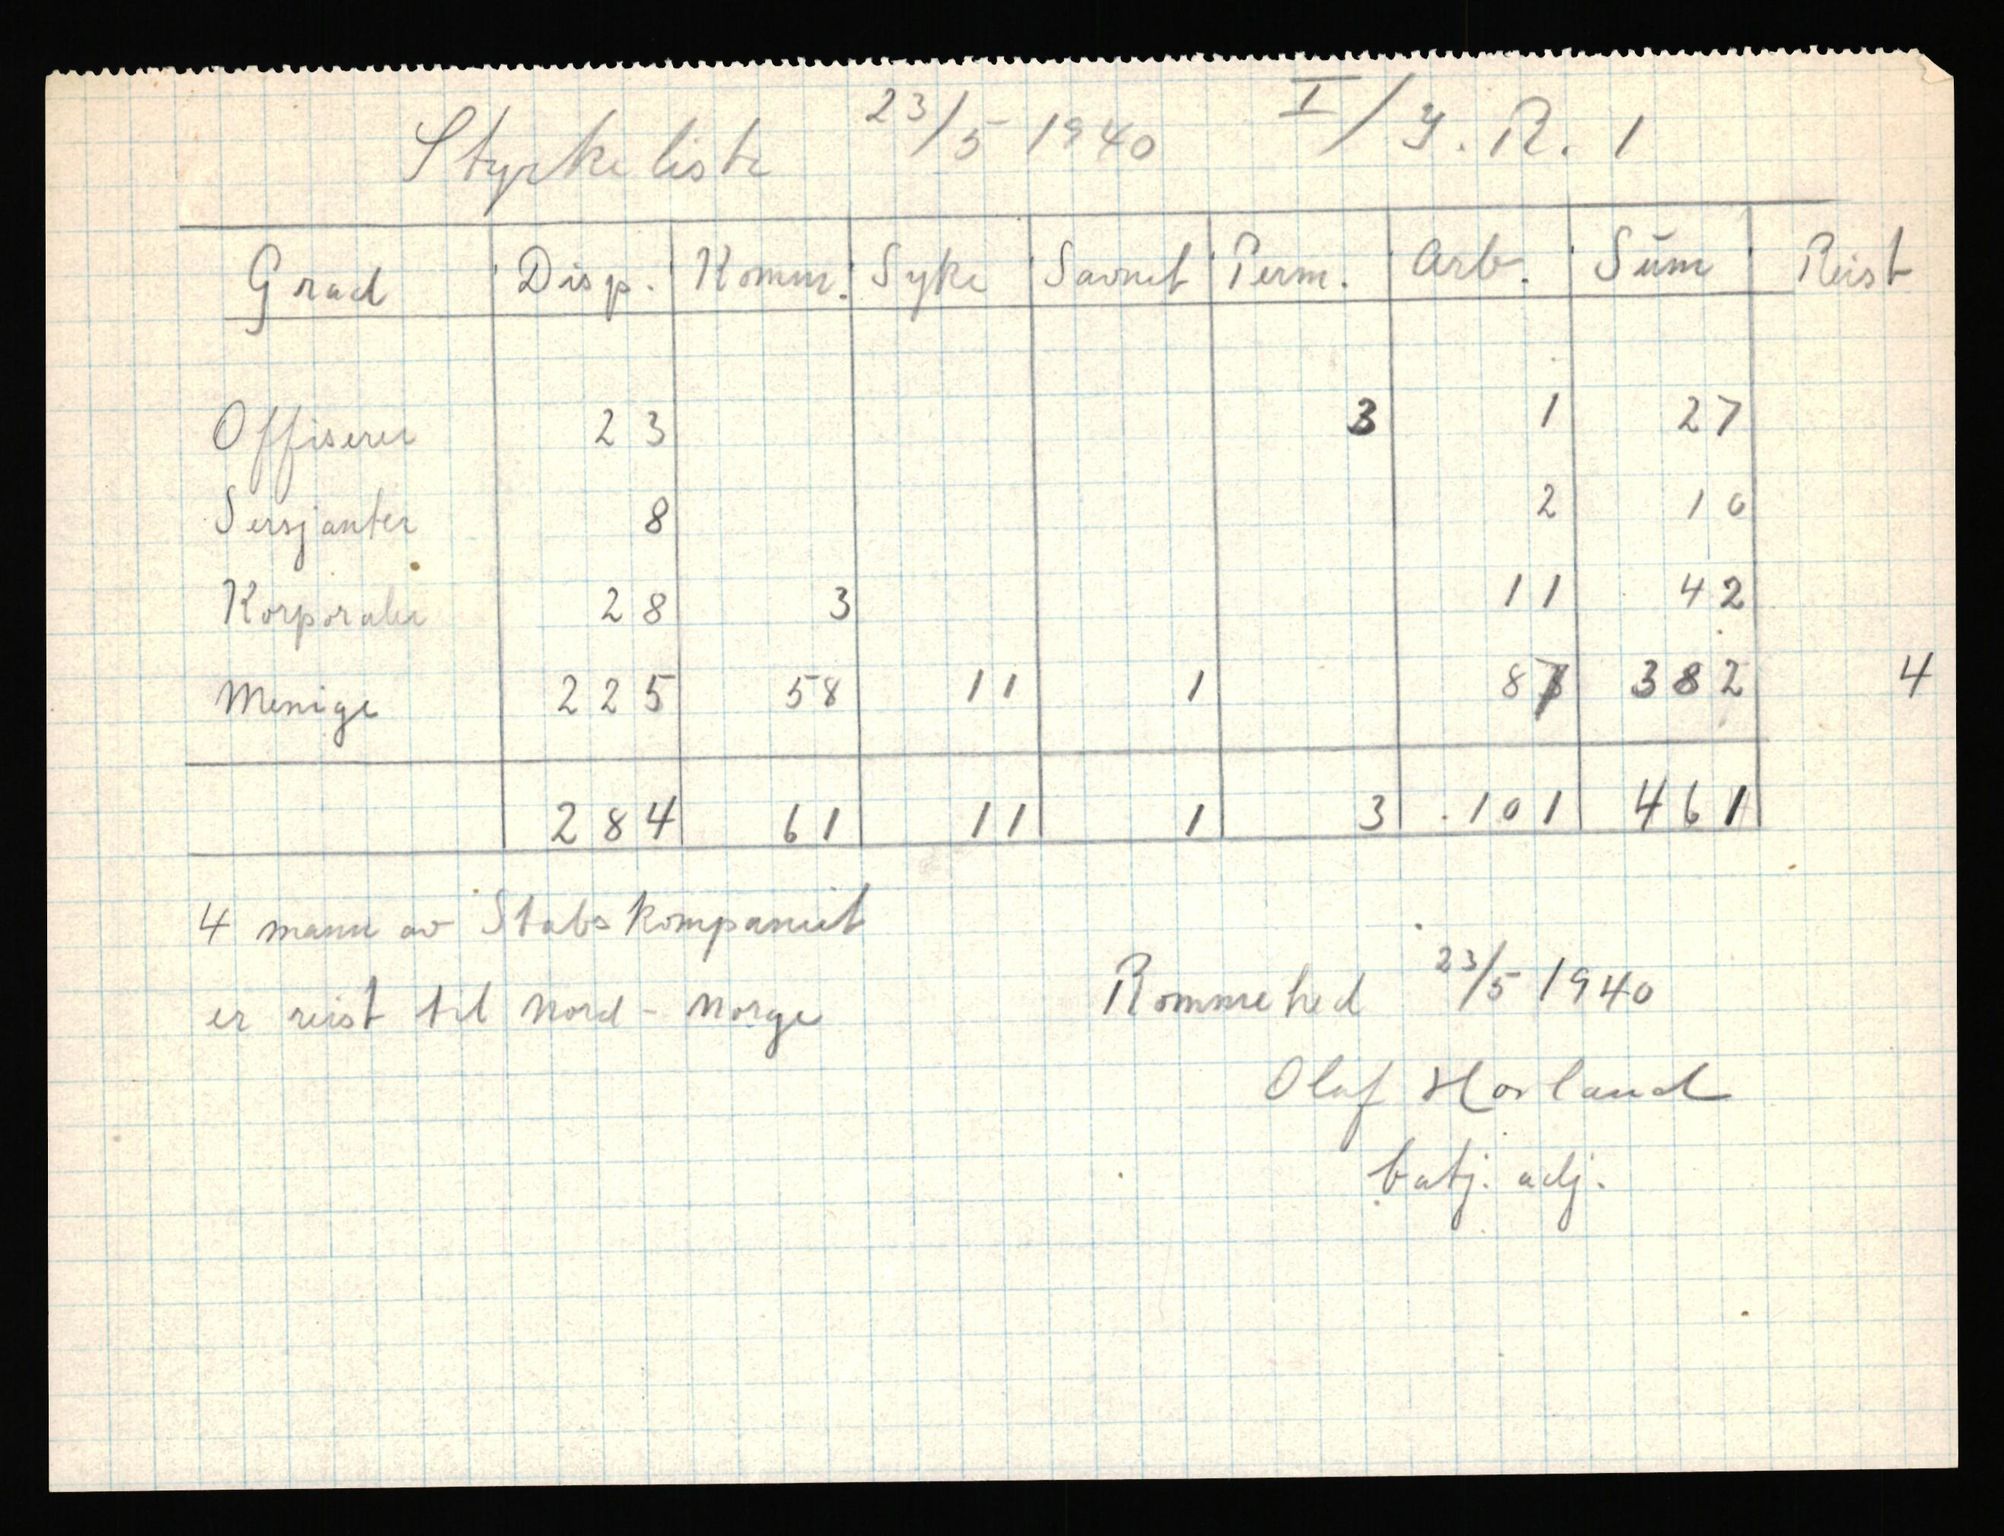 Styrkeliste 23/5 1940 I/J.R. 1
Grad Disp. Komm. Syke Savnet Perm. Arb. Sum Reist
Offiserer 23 3 1 27
Sersjanter 8 2 10
Korporaler 28 3 11 42
Menige 225 58 11 1 87 382 4
284 61 11 1 3 101 461
4 mann av Stabskompaniet
er reist til Nord-Norge
Rommehed 23/5 1940
Olaf Horland
batj. adj.